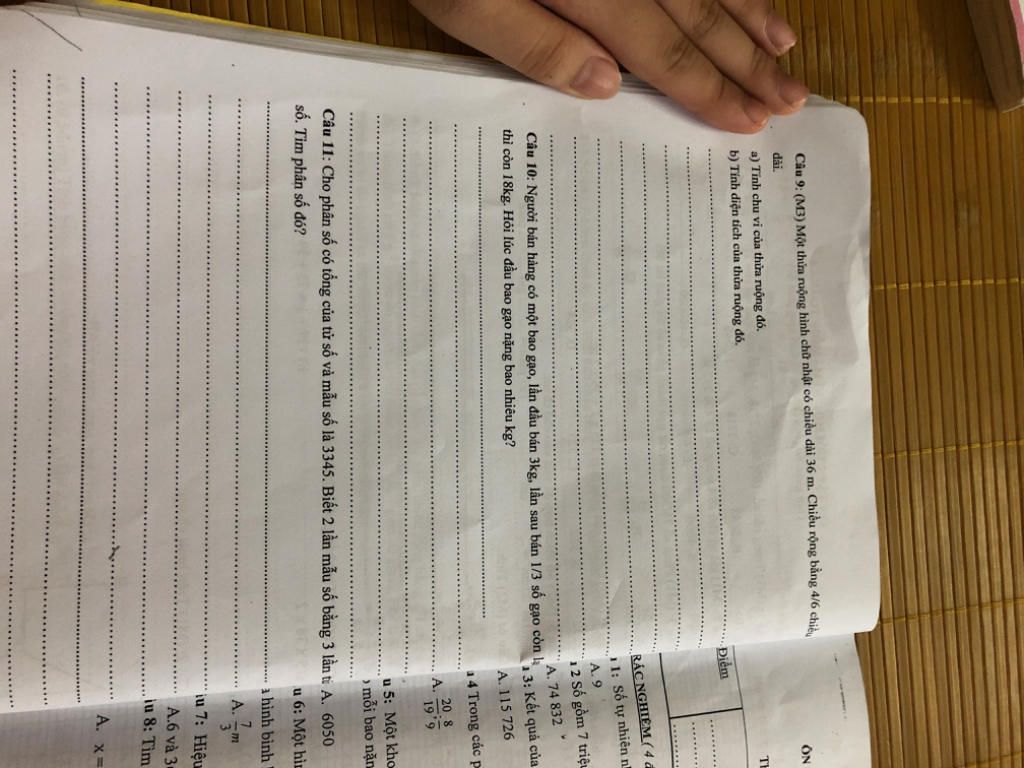 Câu 9: (M3) Một thửa ruộng hình chữ nhật có chiều dài 36 m. Chiều rộng bằng 4/6 chiều
dài.
a) Tính chu vi của thửa ruộng đó.
b) Tính diện tích của thửa ruộng đó.
Câu 10: Người bán hàng có một bao gạo, lần đầu bán 3kg, lần sau bán 1/3 số gạo còn
thì còn 18kg. Hỏi lúc đầu bao gạo nặng bao nhiêu kg?
Câu 11: Cho phân số có tổng của tử số và mẫu số là 3345. Biết 2 lần mẫu số bằng 3 lần
số. Tìm phân số đó?
ÔN
Điểm
RẮC NGHIỆM ( 4
1: Số tự nhiên
A. 9
2 Số gồm 7 triệu
A. 74 832
3: Kết quả của
A. 115 726
4 Trong các
A. 20/19 ; 8/9
u 5: Một kho
mỗi bao
A. 6050
u 6: Một
hình bình
A. 7/3 m
iu 7: Hiệu
A.6 và
iu 8: Tìm
A. x =